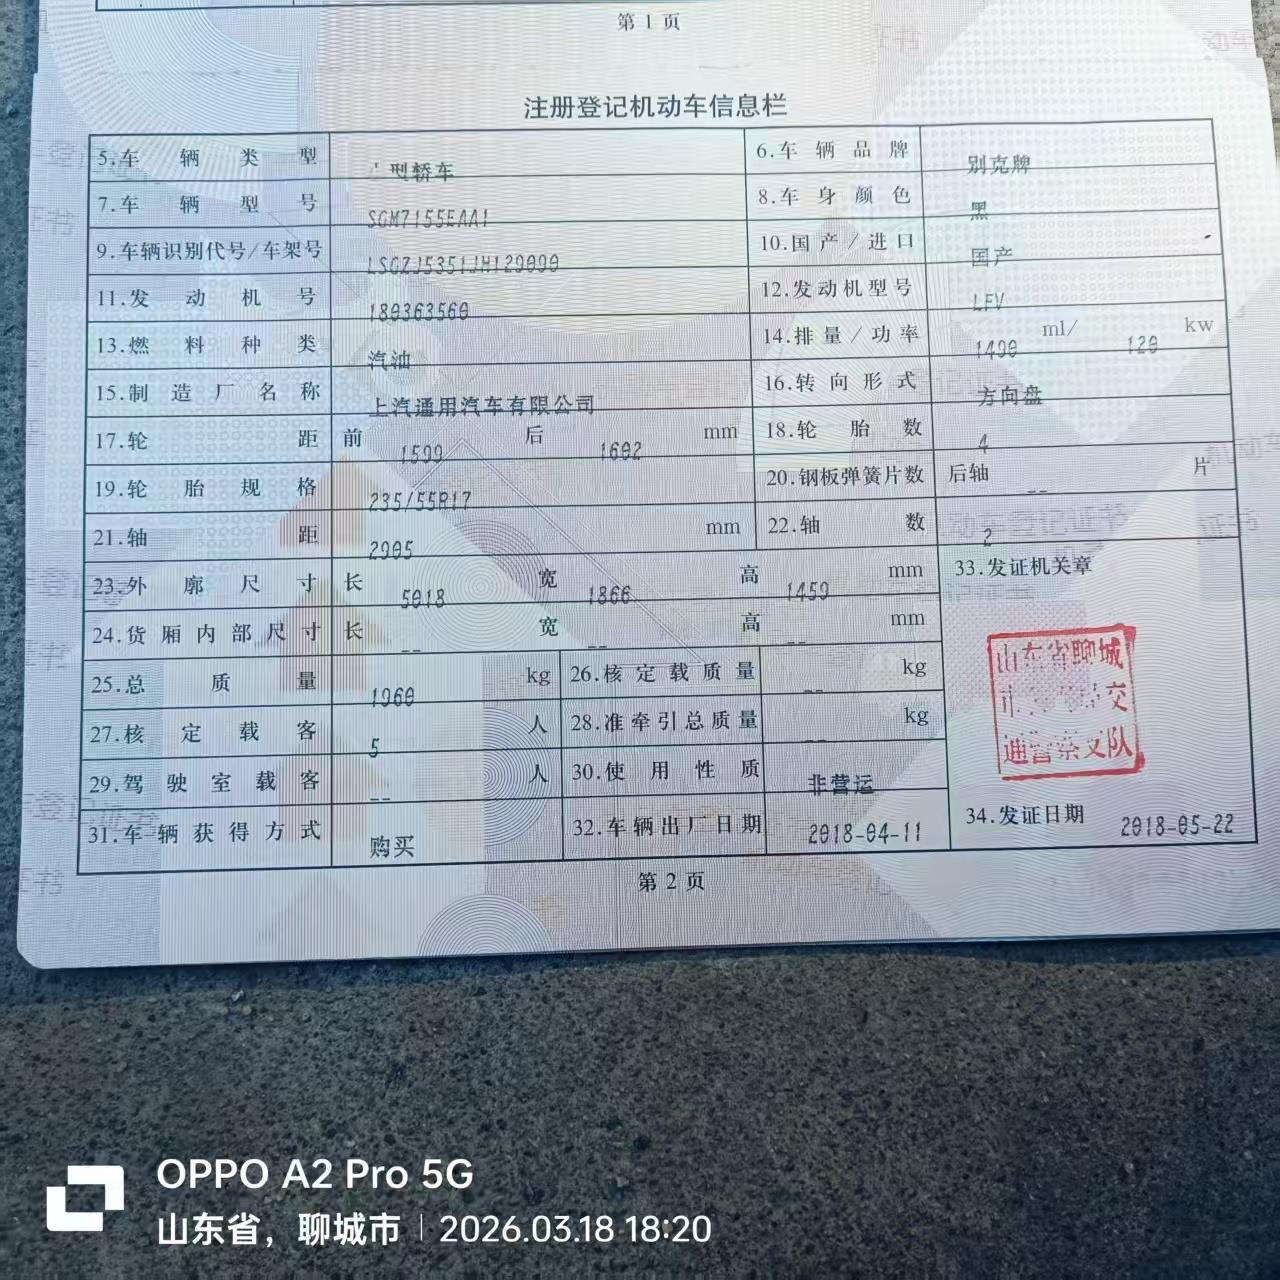 第 1 页
注册登记机动车信息栏
5.车辆类型 型轿车 6.车辆品牌 别克牌
7.车辆型号 SGM7155EAA1 8.车身颜色 黑
9.车辆识别代号/车架号 10.国产/进口 国产
11.发动机号 180363560 12.发动机型号 LFV
13.燃料种类 汽油 14.排量/功率 1490 ml/ 120 kw
15.制造厂名称 上汽通用汽车有限公司 16.转向形式 方向盘
17.轮距 前 1599 后 1602 mm 18.轮胎数 4
19.轮胎规格 235/55R17 20.钢板弹簧片数 后轴 -- 片
21.轴距 2905 mm 22.轴数 2
23.外廓尺寸 长 5018 宽 1866 高 1459 mm 33.发证机关章
24.货厢内部尺寸 长 -- 宽 -- 高 -- mm
25.总质量 1960 kg 26.核定载质量 -- kg
27.核定载客 5 人 28.准牵引总质量 -- kg
29.驾驶室载客 -- 人 30.使用性质 非营运
31.车辆获得方式 购买 32.车辆出厂日期 2018-04-11 34.发证日期 2018-05-22
山东省聊城
交
通警察支队
第 2 页
OPPO A2 Pro 5G
山东省，聊城市 | 2026.03.18 18:20